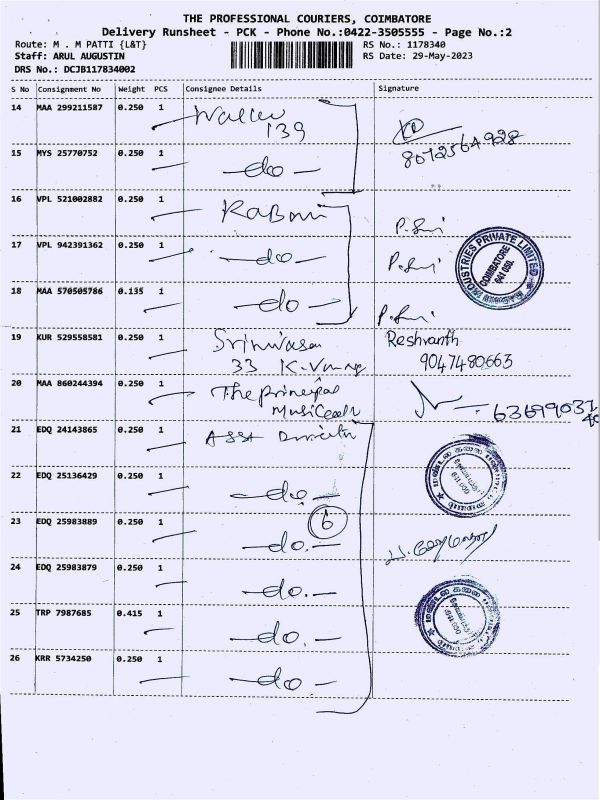 THE PROFESSIONAL COURIERS, COIMBATORE
Delivery Runsheet - PCK - Phone No.:0422-3505555 - Page No.:2
Route: M . M PATTI {L&T}
RS No.: 1178340
Staff: ARUL AUGUSTIN
RS Date: 29-May-2023
DRS No.: DCJB117834002
S No Consignment No Weight PCS Consignee Details Signature
14 MAA 299211587 0.250 1
139
8072564928
15 MYS 25770752 0.250 1 -do-
16 VPL 521002882 0.250 1
17 VPL 942391362 0.250 1 -do-
INDUSTRIES PRIVATE LIMITED
COIMBATORE
641 050.
18 MAA 570505786 0.135 1 -do-
19 KUR 529558581 0.250 1 Srinivasa Reshvanth
33 9047480663
20 MAA 860244394 0.250 1 The principal
21 EDQ 24143865 0.250 1 Asst
22 EDQ 25136429 0.250 1 -do-
6
23 EDQ 25983889 0.250 1 -do.-
24 EDQ 25983879 0.250 1 -do.-
25 TRP 7987685 0.415 1 -do.-
26 KRR 5734250 0.250 1 -do-